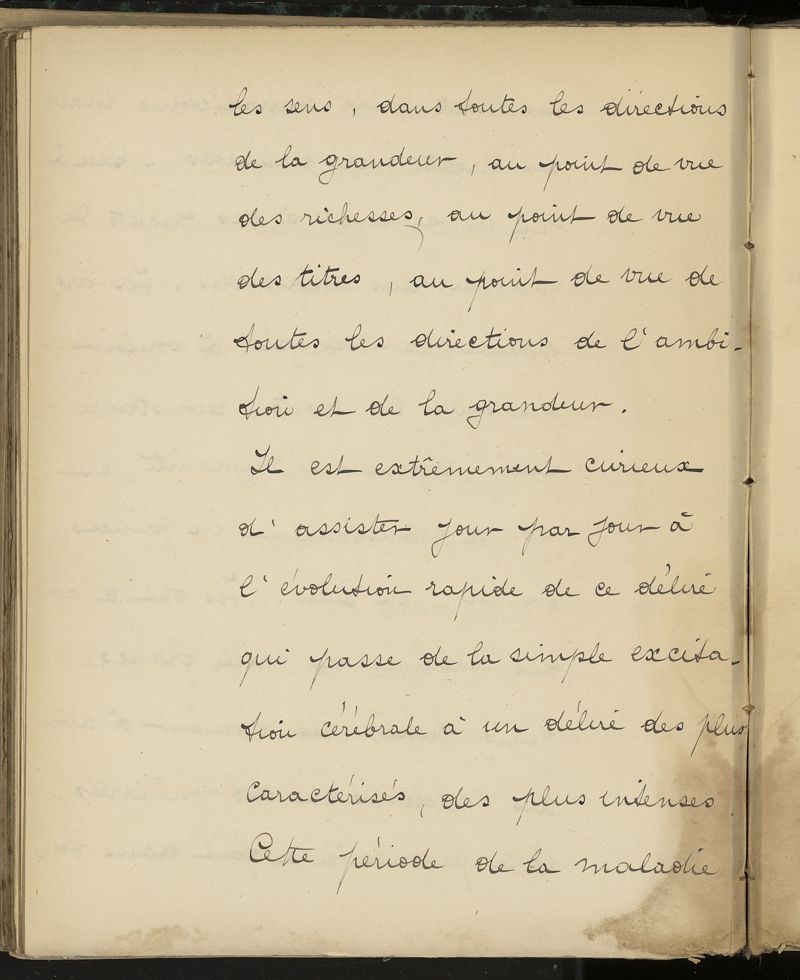 les sens, dans toutes les directions
de la grandeur, au point de vue
des richesses, au point de vue
des titres, au point de vue de
toutes les directions de l'ambi-
tion et de la grandeur.
Il est extrêmement curieux
d'assister jour par jour à
l'évolution rapide de ce délire
qui passe de la simple excita-
tion cérébrale à un délire des plus
caractérisés, des plus intenses.
Cette période de la maladie